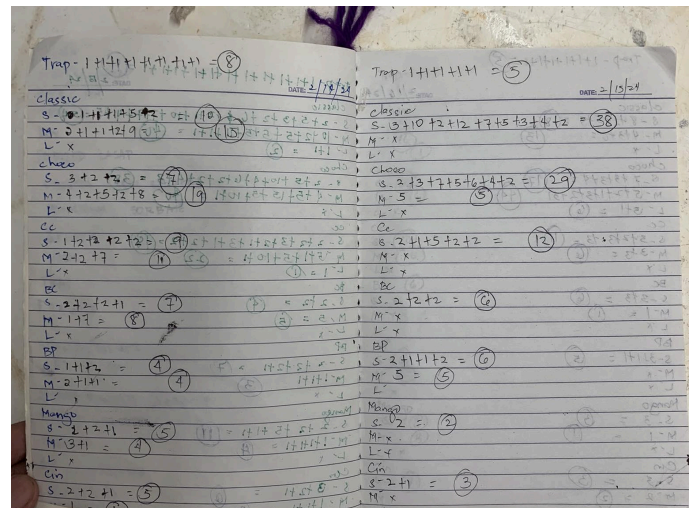 Trap - 1+1+1+1+1+1+1+1 = 8
DATE: 2/14/24
Classic
S - 1+1+1+5+2 = 10
M - 2+1+1+2+9 = 15
L - x
Choco
S - 3+2+2 = 7
M - 4+2+5+2+8 = 19
L - x
Cc
S - 1+2+2+2+2 = 9
M - 2+2+7 = 11
L - x
BC
S - 2+2+2+1 = 7
M - 1+7 = 8
L - x
BP
S - 1+1+2 = 4
M - 2+1+1 = 4
L - x
Mango
S - 2+2+1 = 5
M - 3+1 = 4
L - x
Cin
S - 2+2+1 = 5
Trap - 1+1+1+1+1 = 5
DATE: 2/13/24
Classic
S - 3+10+2+12+7+5+3+4+2 = 38
M - x
L - x
Choco
S - 2+3+7+5+6+4+2 = 29
M - 5 = 5
L - x
Cc
S - 2+1+5+2+2 = 12
M - x
L - x
BC
S - 2+2+2 = 6
M - x
L - x
BP
S - 2+1+1+2 = 6
M - 5 = 5
L -
Mango
S - 2 = 2
M - x
L - x
Cin
S - 2+1 = 3
M - x